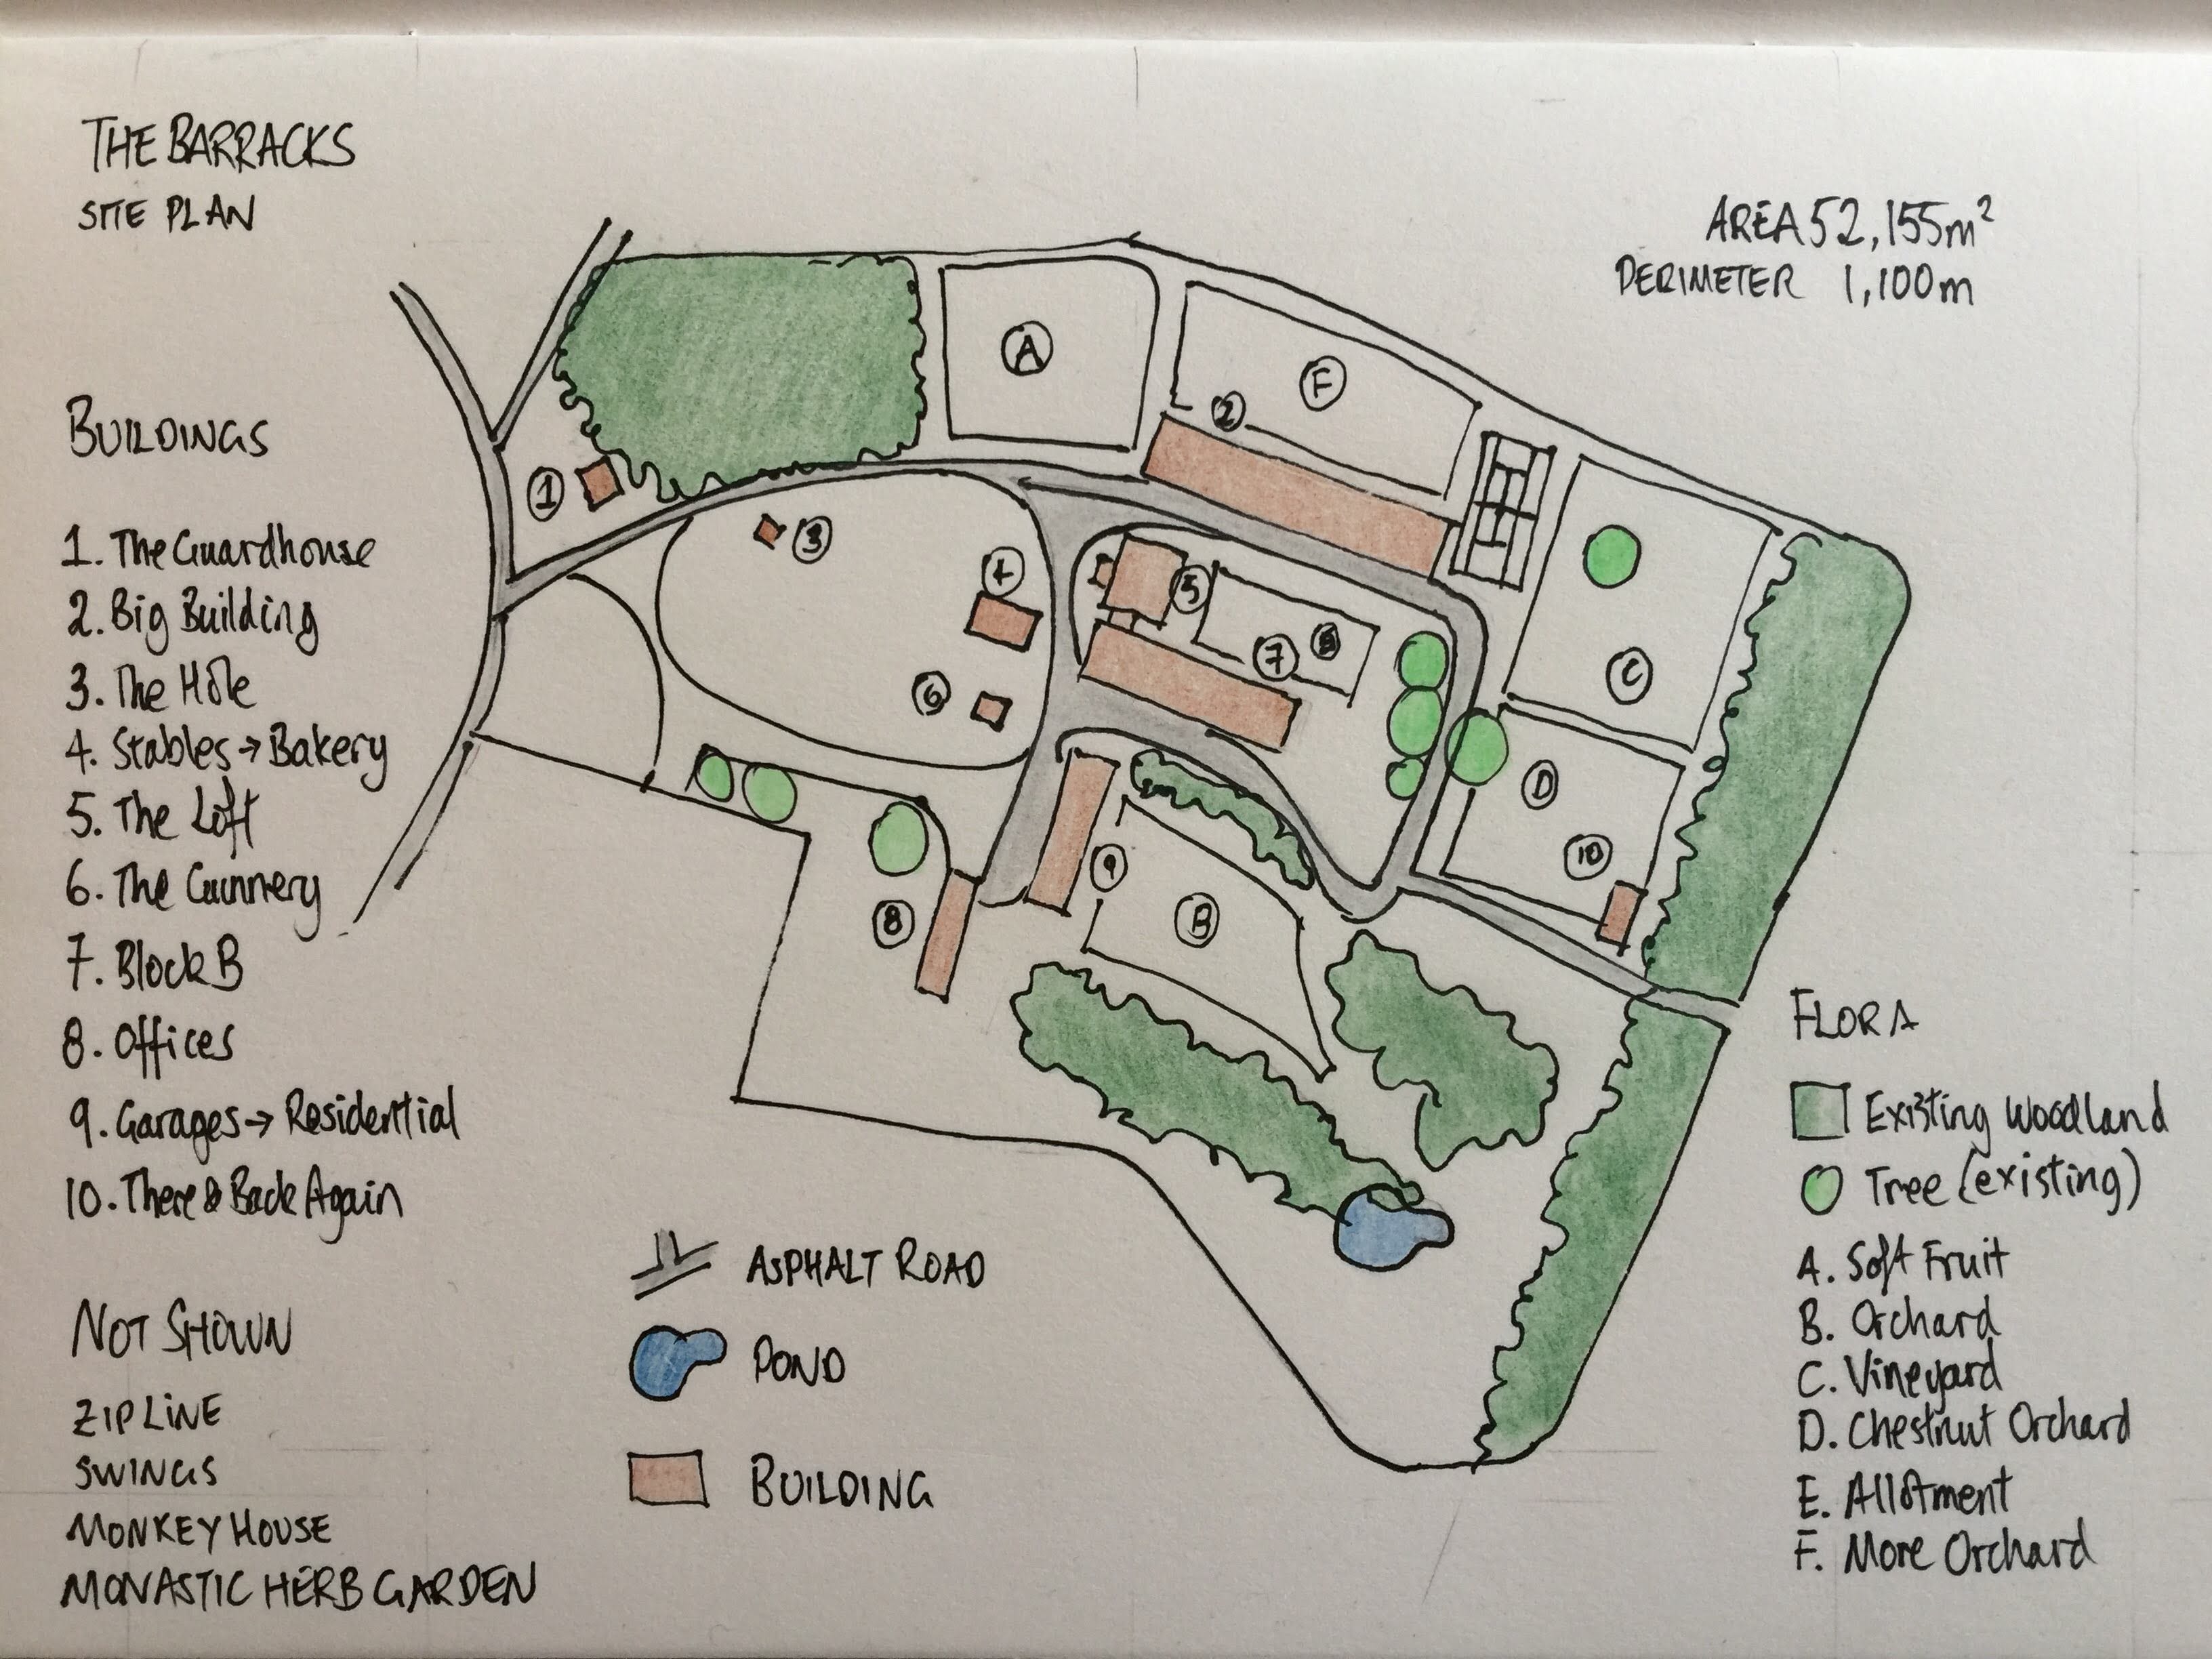 THE BARRACKS
SITE PLAN
AREA 52,155m²
PERIMETER 1,100m
BUILDINGS
1. The Guardhouse
2. Big Building
3. The Hole
4. Stables → Bakery
5. The Loft
6. The Gunnery
7. Block B
8. Offices
9. Garages → Residential
10. There & Back Again
NOT SHOWN
ZIPLINE
SWINGS
MONKEY HOUSE
MONASTIC HERB GARDEN
A
F
2
1
3
4
5
7
6
C
D
10
9
8
B
ASPHALT ROAD
POND
BUILDING
FLORA
Existing Woodland
Tree (existing)
A. Soft Fruit
B. Orchard
C. Vineyard
D. Chestnut Orchard
E. Allotment
F. More Orchard